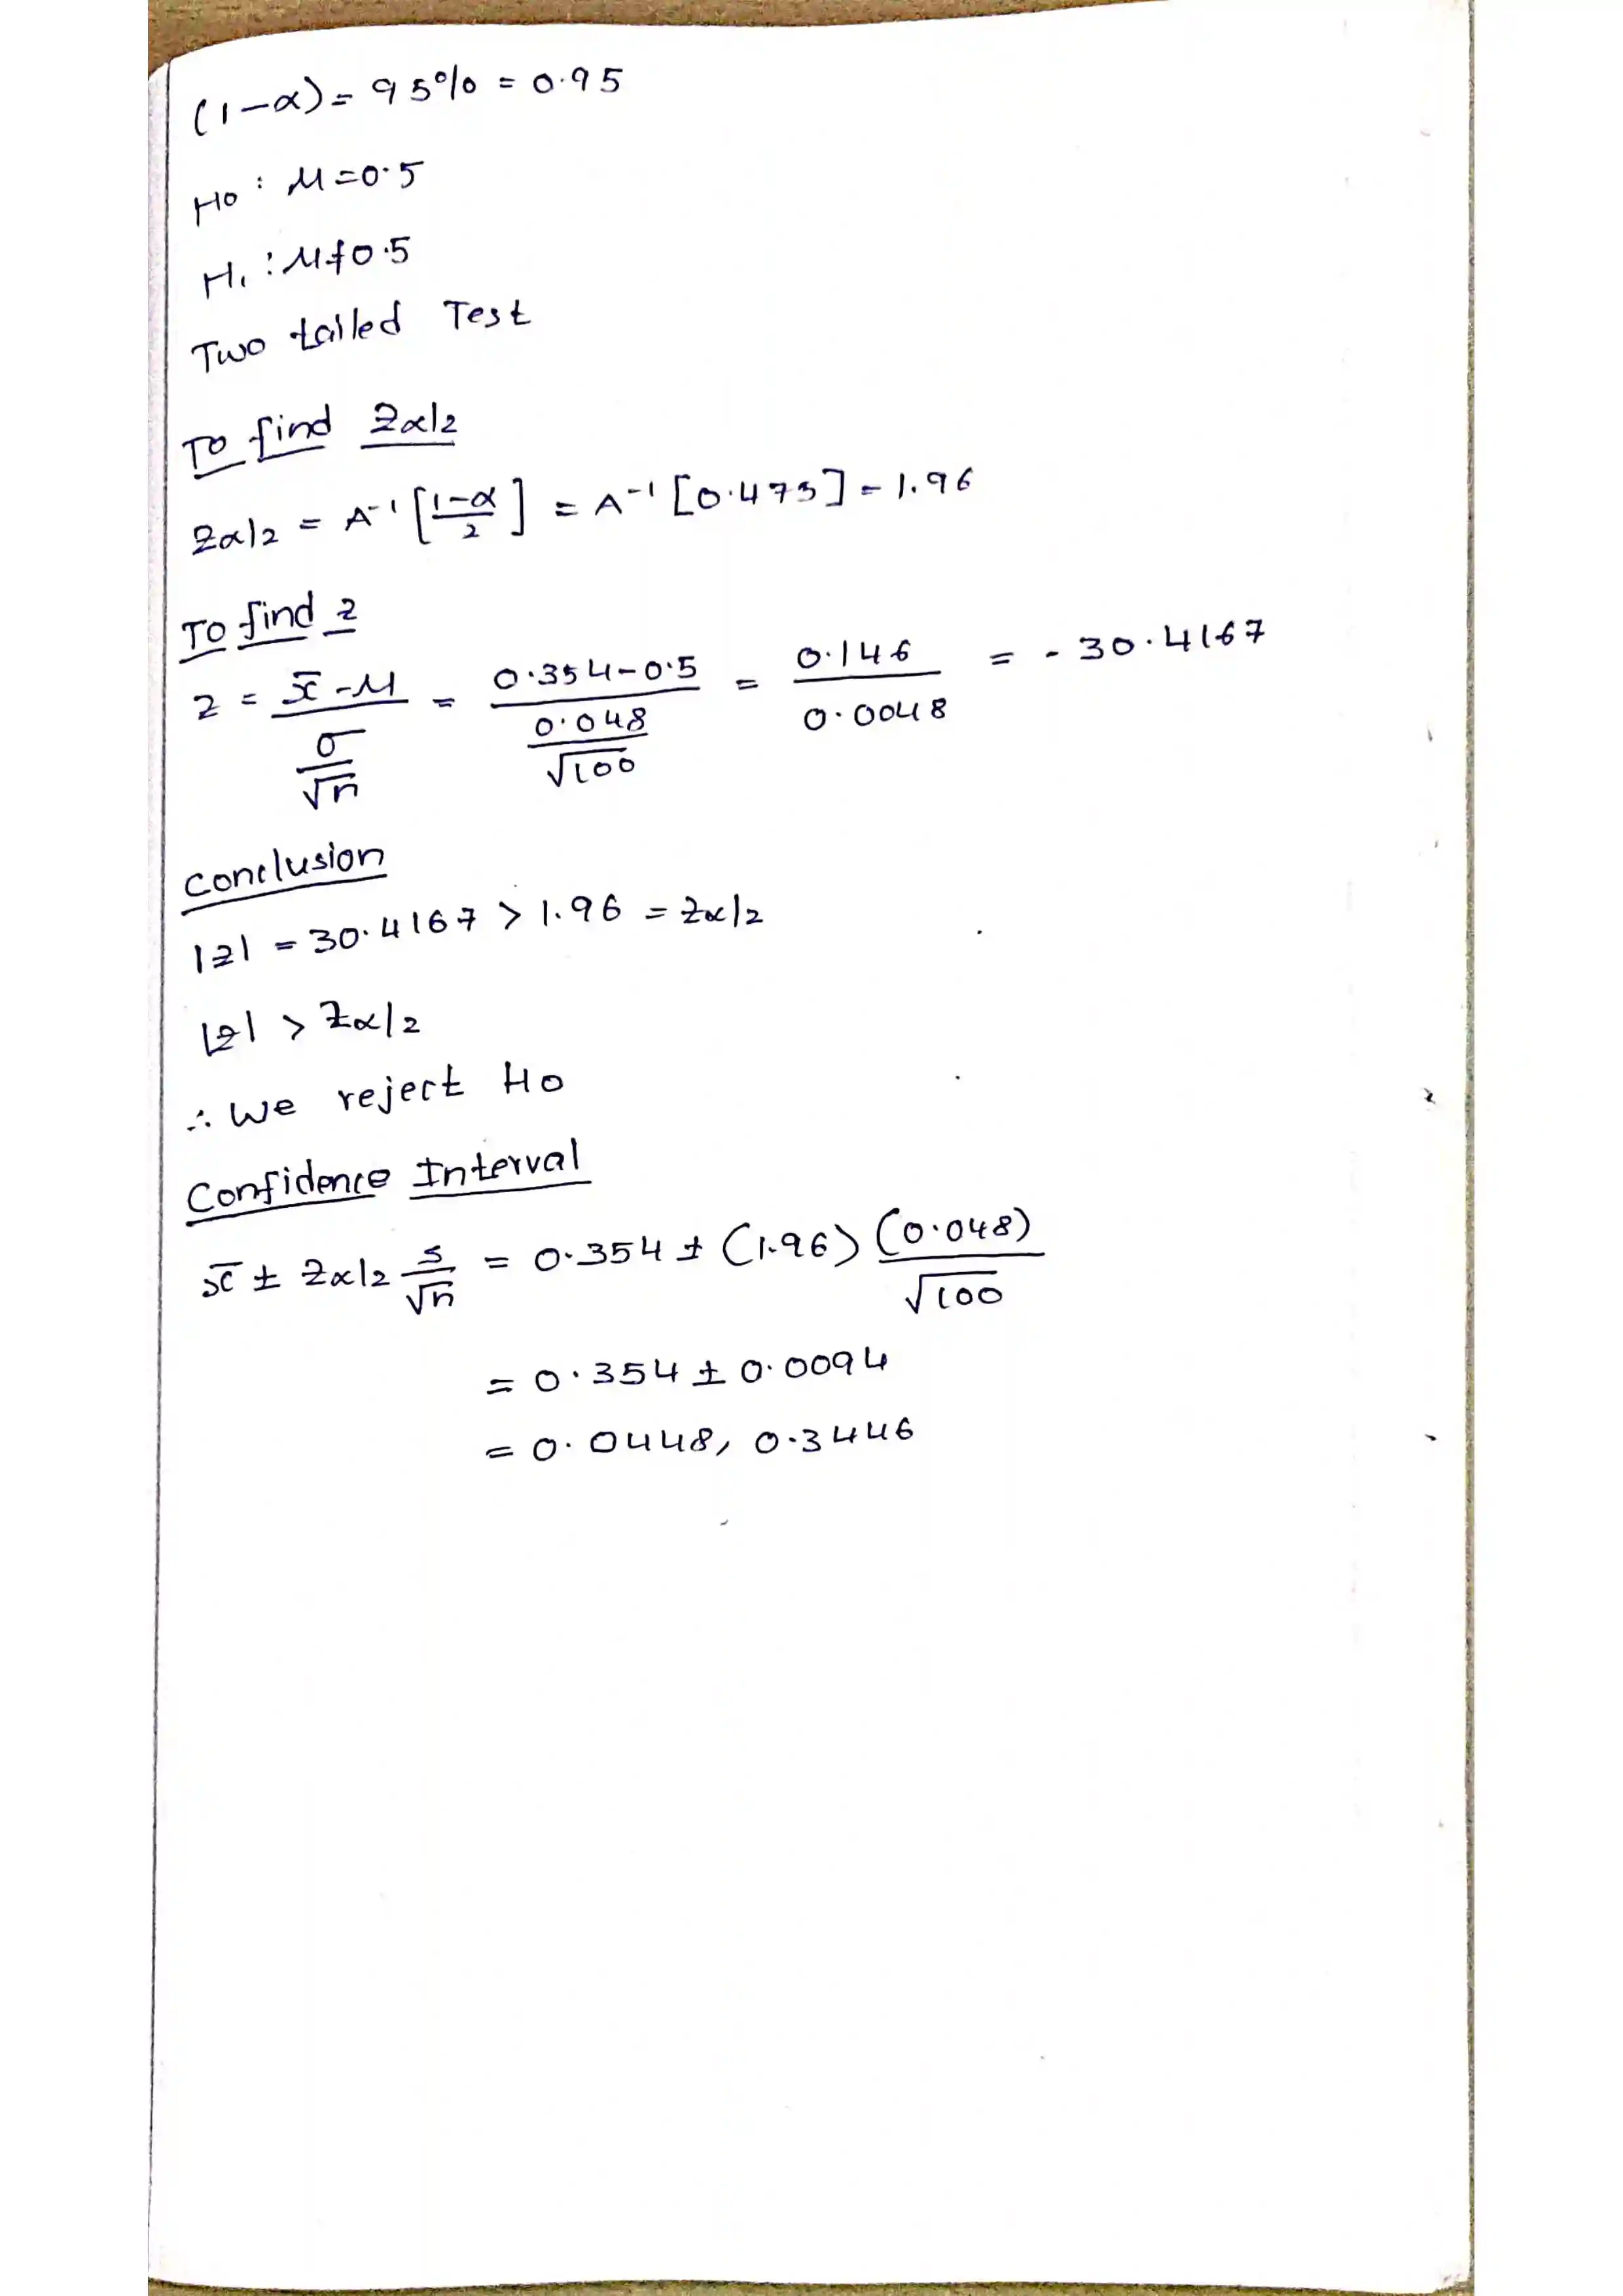 (1-α) = 95% = 0.95
H0 : μ = 0.5
H1 : μ ≠ 0.5
Two tailed Test
To find Zα/2
Zα/2 = A⁻¹ [1-α/2] = A⁻¹ [0.475] = 1.96
To find z
z = x̄ - μ / σ/√n = 0.354 - 0.5 / 0.048/√100 = 0.146 / 0.0048 = - 30.4167
Conclusion
|z| = 30.4167 > 1.96 = Zα/2
|z| > Zα/2
∴ We reject H0
Confidence Interval
x̄ ± Zα/2 s/√n = 0.354 ± (1.96) (0.048)/√100
= 0.354 ± 0.0094
= 0.0448, 0.3446